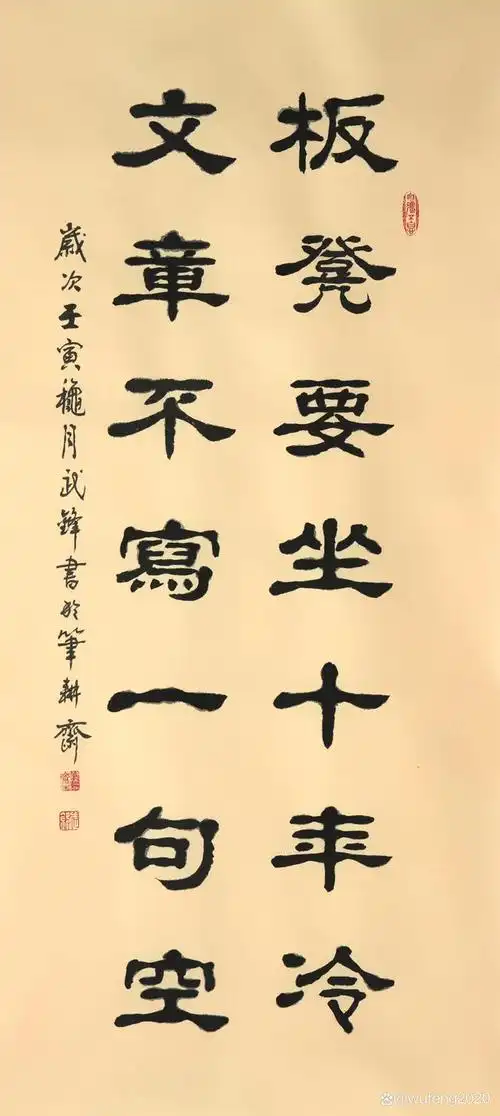 板凳要坐十年冷
文章不寫一句空
歲次壬寅穐月武鋒書於筆耕齋
@wufeng2020